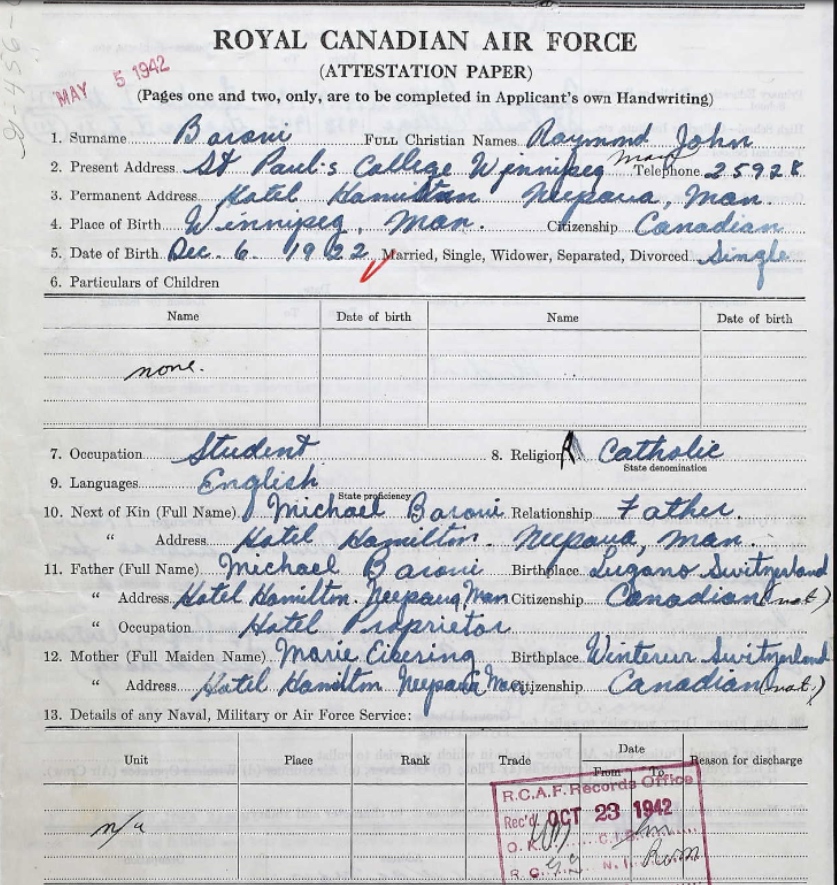 MAY 5 1942
ROYAL CANADIAN AIR FORCE
(ATTESTATION PAPER)
(Pages one and two, only, are to be completed in Applicant's own Handwriting)
1. Surname Baroni FULL Christian Names Raymond John
2. Present Address St Paul's College Winnipeg Man Telephone 25928
3. Permanent Address Hotel Hamilton Neepawa, Man.
4. Place of Birth Winnipeg, Man. Citizenship Canadian
5. Date of Birth Dec. 6. 1922 Married, Single, Widower, Separated, Divorced Single
6. Particulars of Children
Name Date of birth Name Date of birth
none.
7. Occupation Student 8. Religion R Catholic
State denomination
9. Languages English
State proficiency
10. Next of Kin (Full Name) Michael Baroni Relationship Father
" Address Hotel Hamilton. Neepawa, Man.
11. Father (Full Name) Michael Baroni Birthplace Lugano Switzerland
" Address Hotel Hamilton. Neepawa Man Citizenship Canadian (nat.)
" Occupation Hotel Proprietor
12. Mother (Full Maiden Name) Marie Birthplace Switzerland
" Address Hotel Hamilton Neepawa Man Citizenship Canadian (nat.)
13. Details of any Naval, Military or Air Force Service:
Unit Place Rank Trade Date Reason for discharge
From To
n/a
R.C.A.F. Records Office
Rec'd OCT 23 1942
O.K.